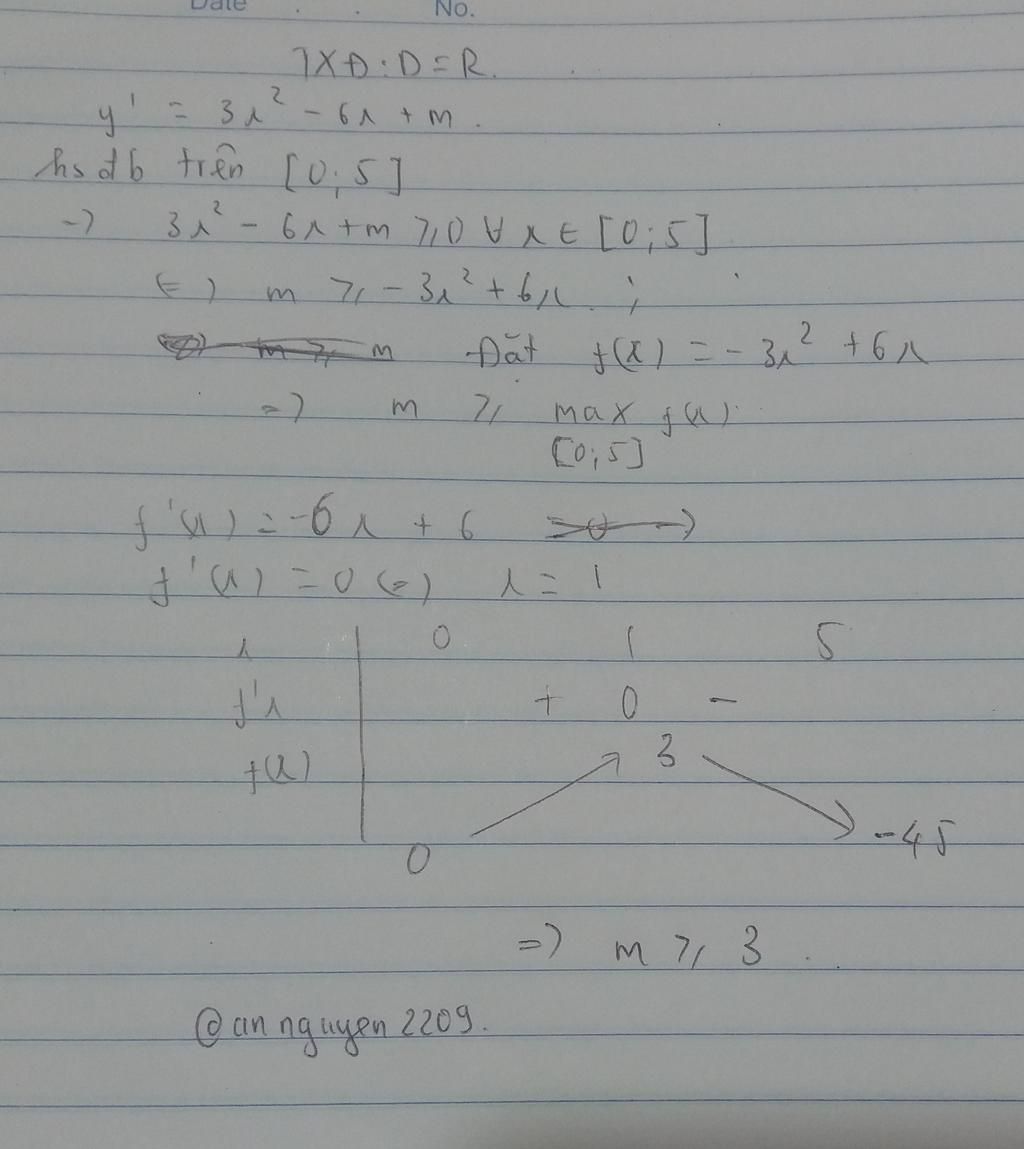 Date . . No.
TXĐ: D = R.
y' = 3x² - 6x + m.
hs đb trên [0; 5]
-> 3x² - 6x + m ⩾ 0 ∀ x ∈ [0; 5]
<=> m ⩾ -3x² + 6x. ;
m Đặt f(x) = -3x² + 6x
=> m ⩾ max f(x)
[0; 5]
f'(x) = -6x + 6
f'(x) = 0 <=> x = 1
x 0 1 5
f'x + 0 -
f(x) 3
-45
0
=> m ⩾ 3.
@an nguyen 2209.